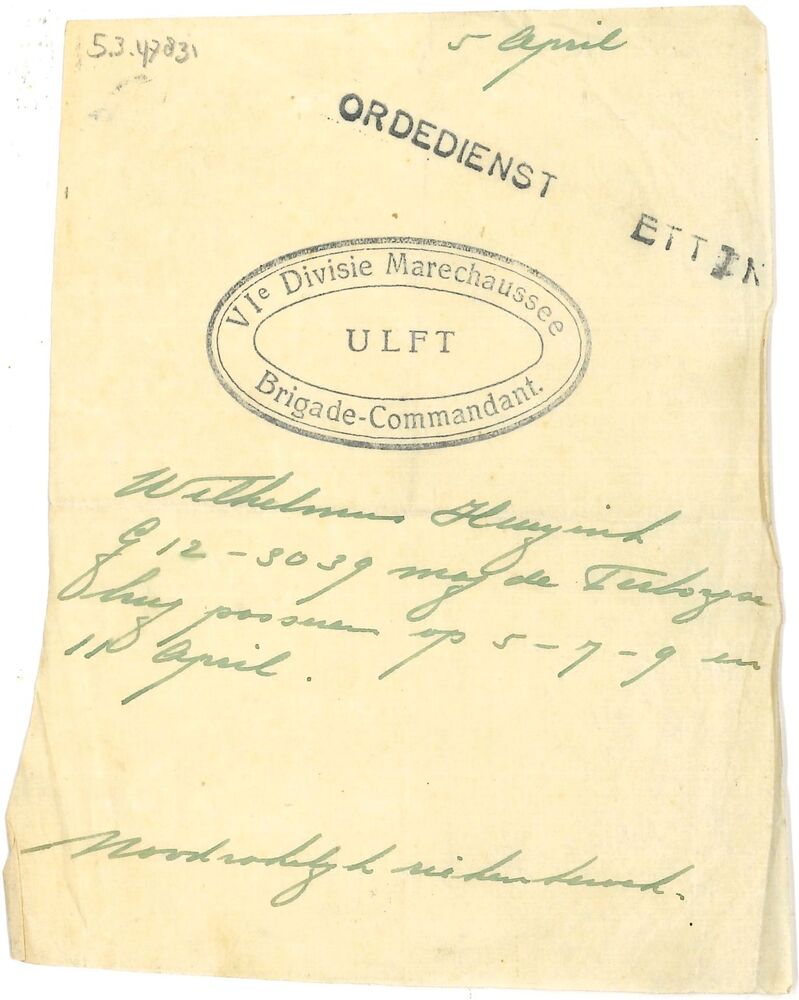 5.3.47831
5 April
ORDEDIENST
ETTIN
VIe Divisie Marechaussee
ULFT
Brigade-Commandant.
Wilhelmus Huyink
G 12 - 3039 mag de Terborgse
brug passeren op 5 - 7 - 9 en
11 April.
Noodzakelijk ziekenbezoek.